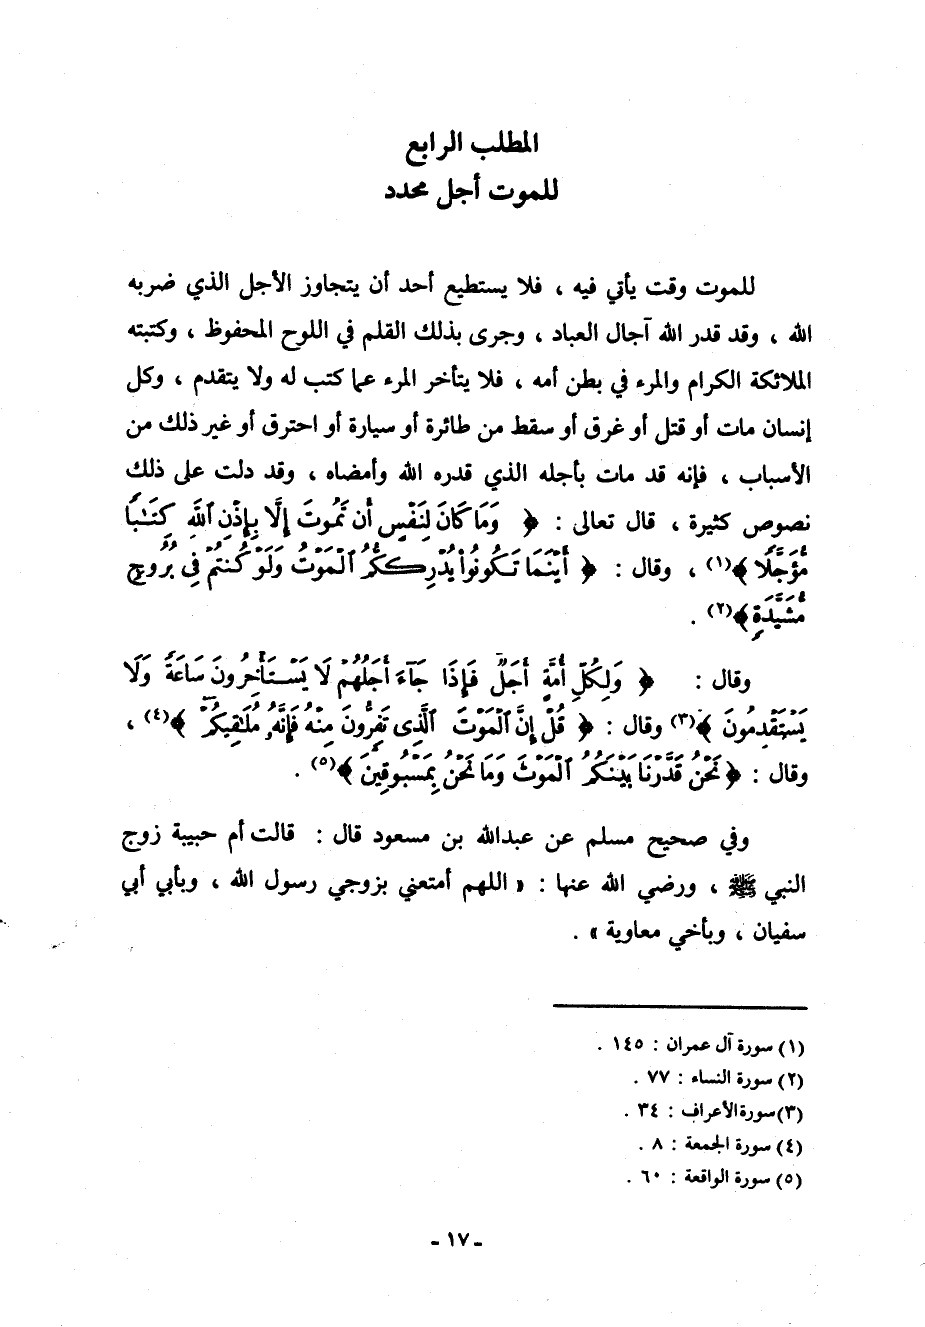 المطلب الرابع
للموت أجل محدد
للموت وقت يأتي فيه ، فلا يستطيع أحد أن يتجاوز الأجل الذي ضربه
الله ، وقد قدر الله آجال العباد ، وجرى بذلك القلم في اللوح المحفوظ ، وكتبته
الملائكة الكرام والمرء في بطن أمه ، فلا يتأخر المرء عما كتب له ولا يتقدم ، وكل
إنسان مات أو قتل أو غرق أو سقط من طائرة أو سيارة أو احترق أو غير ذلك من
الأسباب ، فإنه قد مات بأجله الذي قدره الله وأمضاه ، وقد دلت على ذلك
نصوص كثيرة ، قال تعالى : ﴿ وَمَا كَانَ لِنَفْسٍ أَن تَمُوتَ إِلَّا بِإِذْنِ ٱللَّهِ كِتَٰبًا
مُّؤَجَّلًا ﴾(١) ، وقال : ﴿ أَيْنَمَا تَكُونُوا۟ يُدْرِككُّمُ ٱلْمَوْتُ وَلَوْ كُنتُمْ فِى بُرُوجٍ
مُّشَيَّدَةٍ ﴾(٢) .
وقال : ﴿ وَلِكُلِّ أُمَّةٍ أَجَلٌ فَإِذَا جَآءَ أَجَلُهُمْ لَا يَسْتَأْخِرُونَ سَاعَةً وَلَا
يَسْتَقْدِمُونَ ﴾(٣) وقال : ﴿ قُلْ إِنَّ ٱلْمَوْتَ ٱلَّذِى تَفِرُّونَ مِنْهُ فَإِنَّهُۥ مُلَٰقِيكُمْ ﴾(٤) ،
وقال : ﴿ نَحْنُ قَدَّرْنَا بَيْنَكُمُ ٱلْمَوْتَ وَمَا نَحْنُ بِمَسْبُوقِينَ ﴾(٥) .
وفي صحيح مسلم عن عبدالله بن مسعود قال : قالت أم حبيبة زوج
النبي ﷺ ، ورضي الله عنها : « اللهم أمتعني بزوجي رسول الله ، وبأبي أبي
سفيان ، وبأخي معاوية » .
(١) سورة آل عمران : ١٤٥ .
(٢) سورة النساء : ٧٧ .
(٣) سورة الأعراف : ٣٤ .
(٤) سورة الجمعة : ٨ .
(٥) سورة الواقعة : ٦٠ .
- ١٧ -